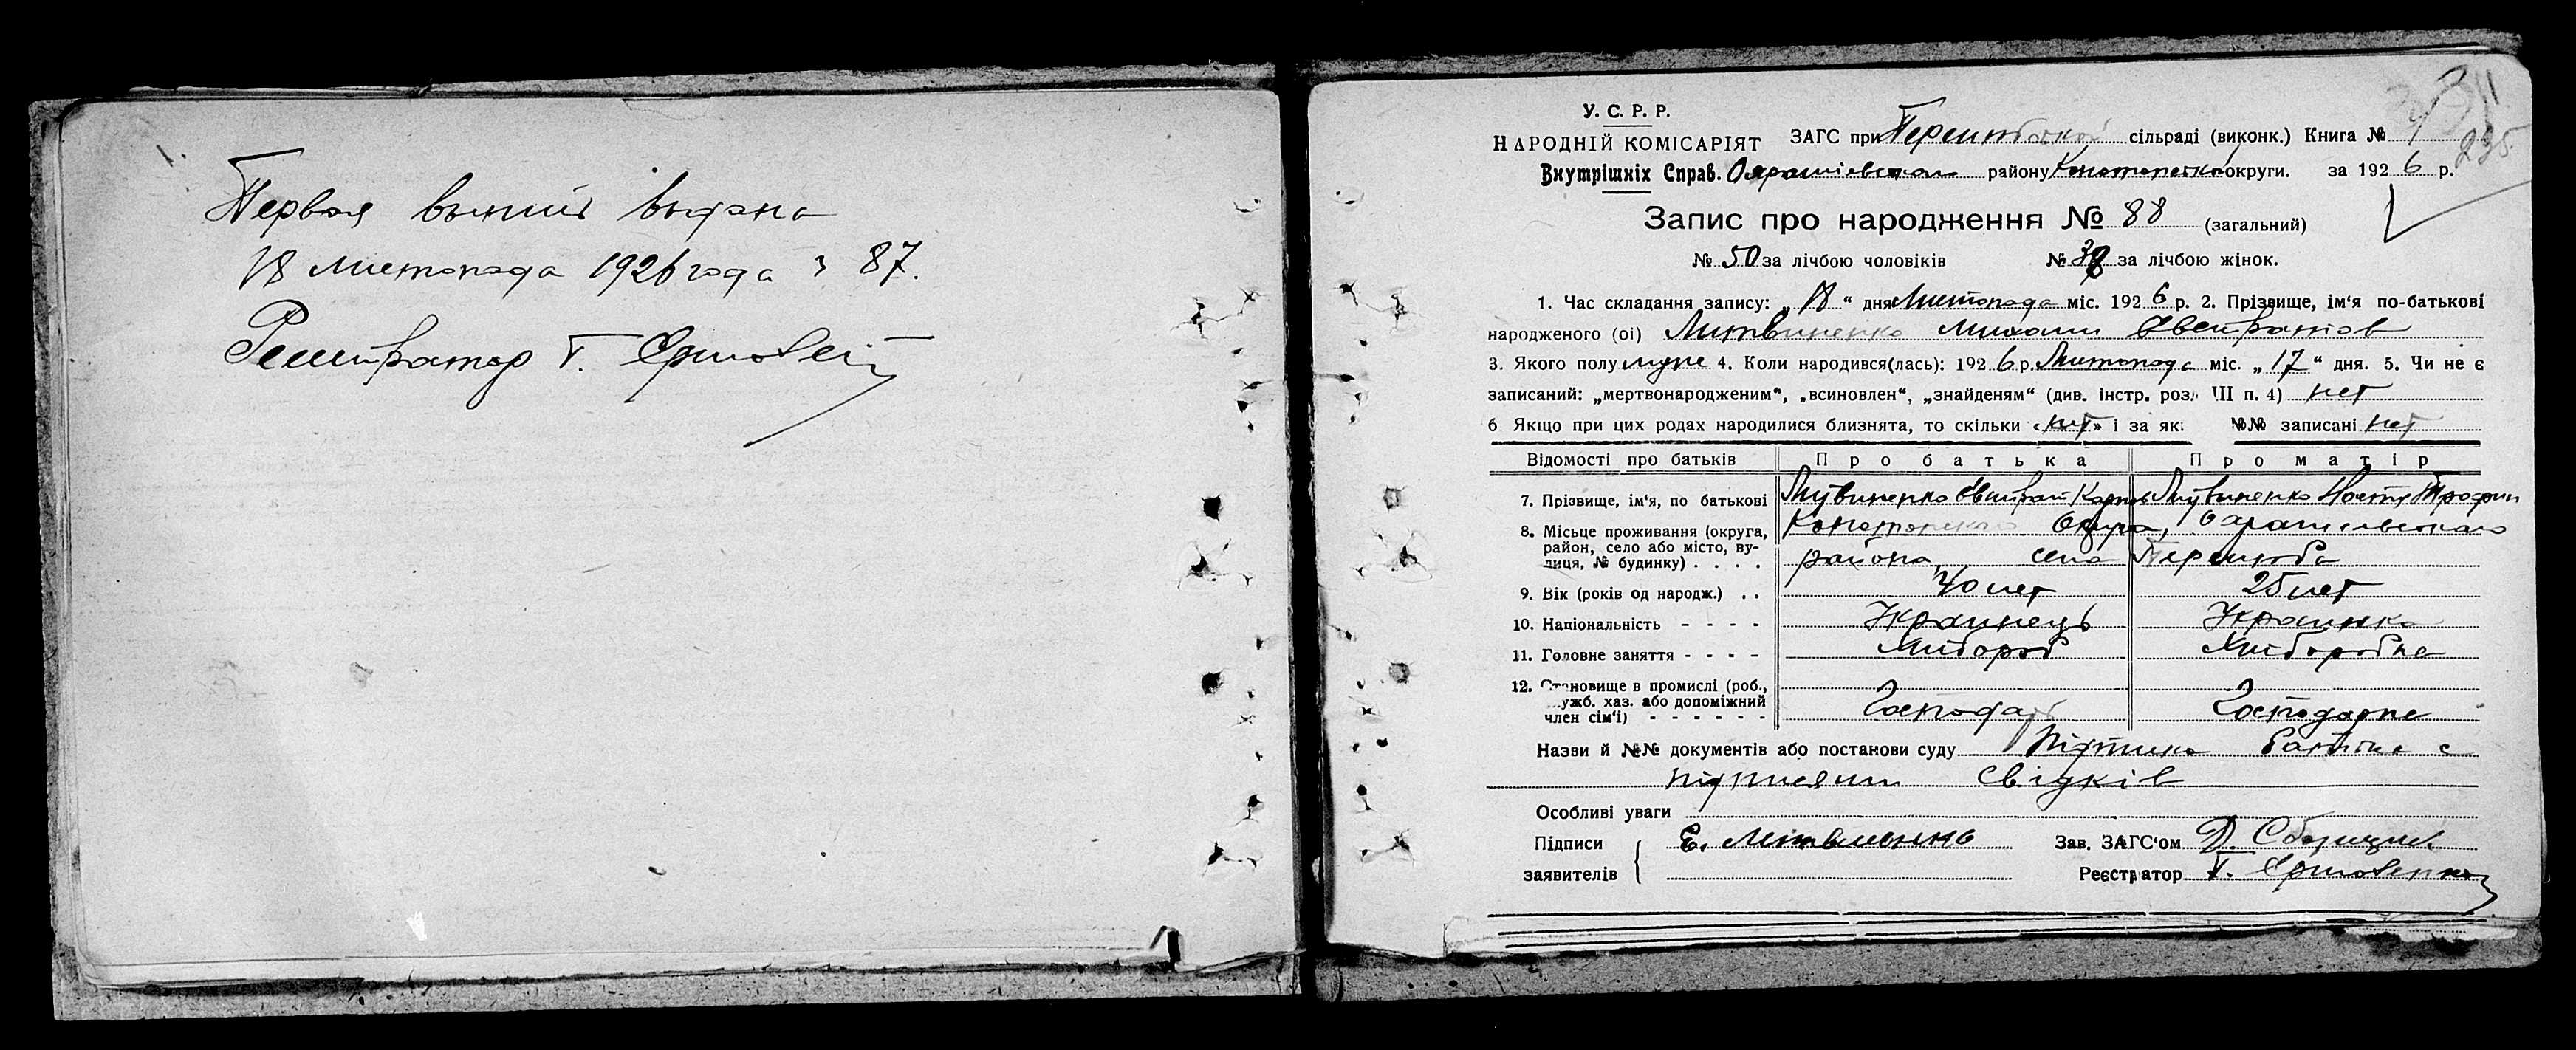 Первая выпись выдана
18 Листопада 1926 года з 87.
Регистратор Т.
У. С. Р. Р.
НАРОДНІЙ КОМІСАРІЯТ
Внутрішніх Справ.
ЗАГС при сільраді (виконк.) Книга № 1
району Конотопской округи. за 1926 р.
235
Запис про народження № 88 (загальний)
№ 50 за лічбою чоловіків № 38 за лічбою жінок.
1. Час складання запису: „18“ дня Листопада міс. 1926 р. 2. Прізвище, ім'я по-батькові
народженого (ої) Литвиненко Михаил
3. Якого полу муж 4. Коли народився(лась): 1926 р. Листопада міс. „17“ дня. 5. Чи не є
записаний: „мертвонародженим“, „всиновлен“, „знайденям“ (див. інстр. розд. III п. 4) нет
6 Якщо при цих родах народилися близнята, то скільки «нет» і за як. №№ записані нет
Відомості про батьків Про батька Про матір
7. Прізвище, ім'я, по батькові Литвиненко Литвиненко Настя Трофим
8. Місьце проживання (округа, район, село або місто, вулиця, № будинку) . . . . Конотопского Округа,
района, села
9. Вік (років од народж.) . . 40 лет 25 лет
10. Національність - - - - Украинець Украинка
11. Головне заняття - - - - Хлібороб Хліборобка
12. Становище в промислі (роб., служб. хаз. або допоміжний член сім'ї) - - - - - - Господарь Господарка
Назви й №№ документів або постанови суду Підписка батька с
підписями свідків
Особливі уваги
Підписи Е. Литвиненко Зав. ЗАГС'ом Д.
заявителів Реєстратор Т.